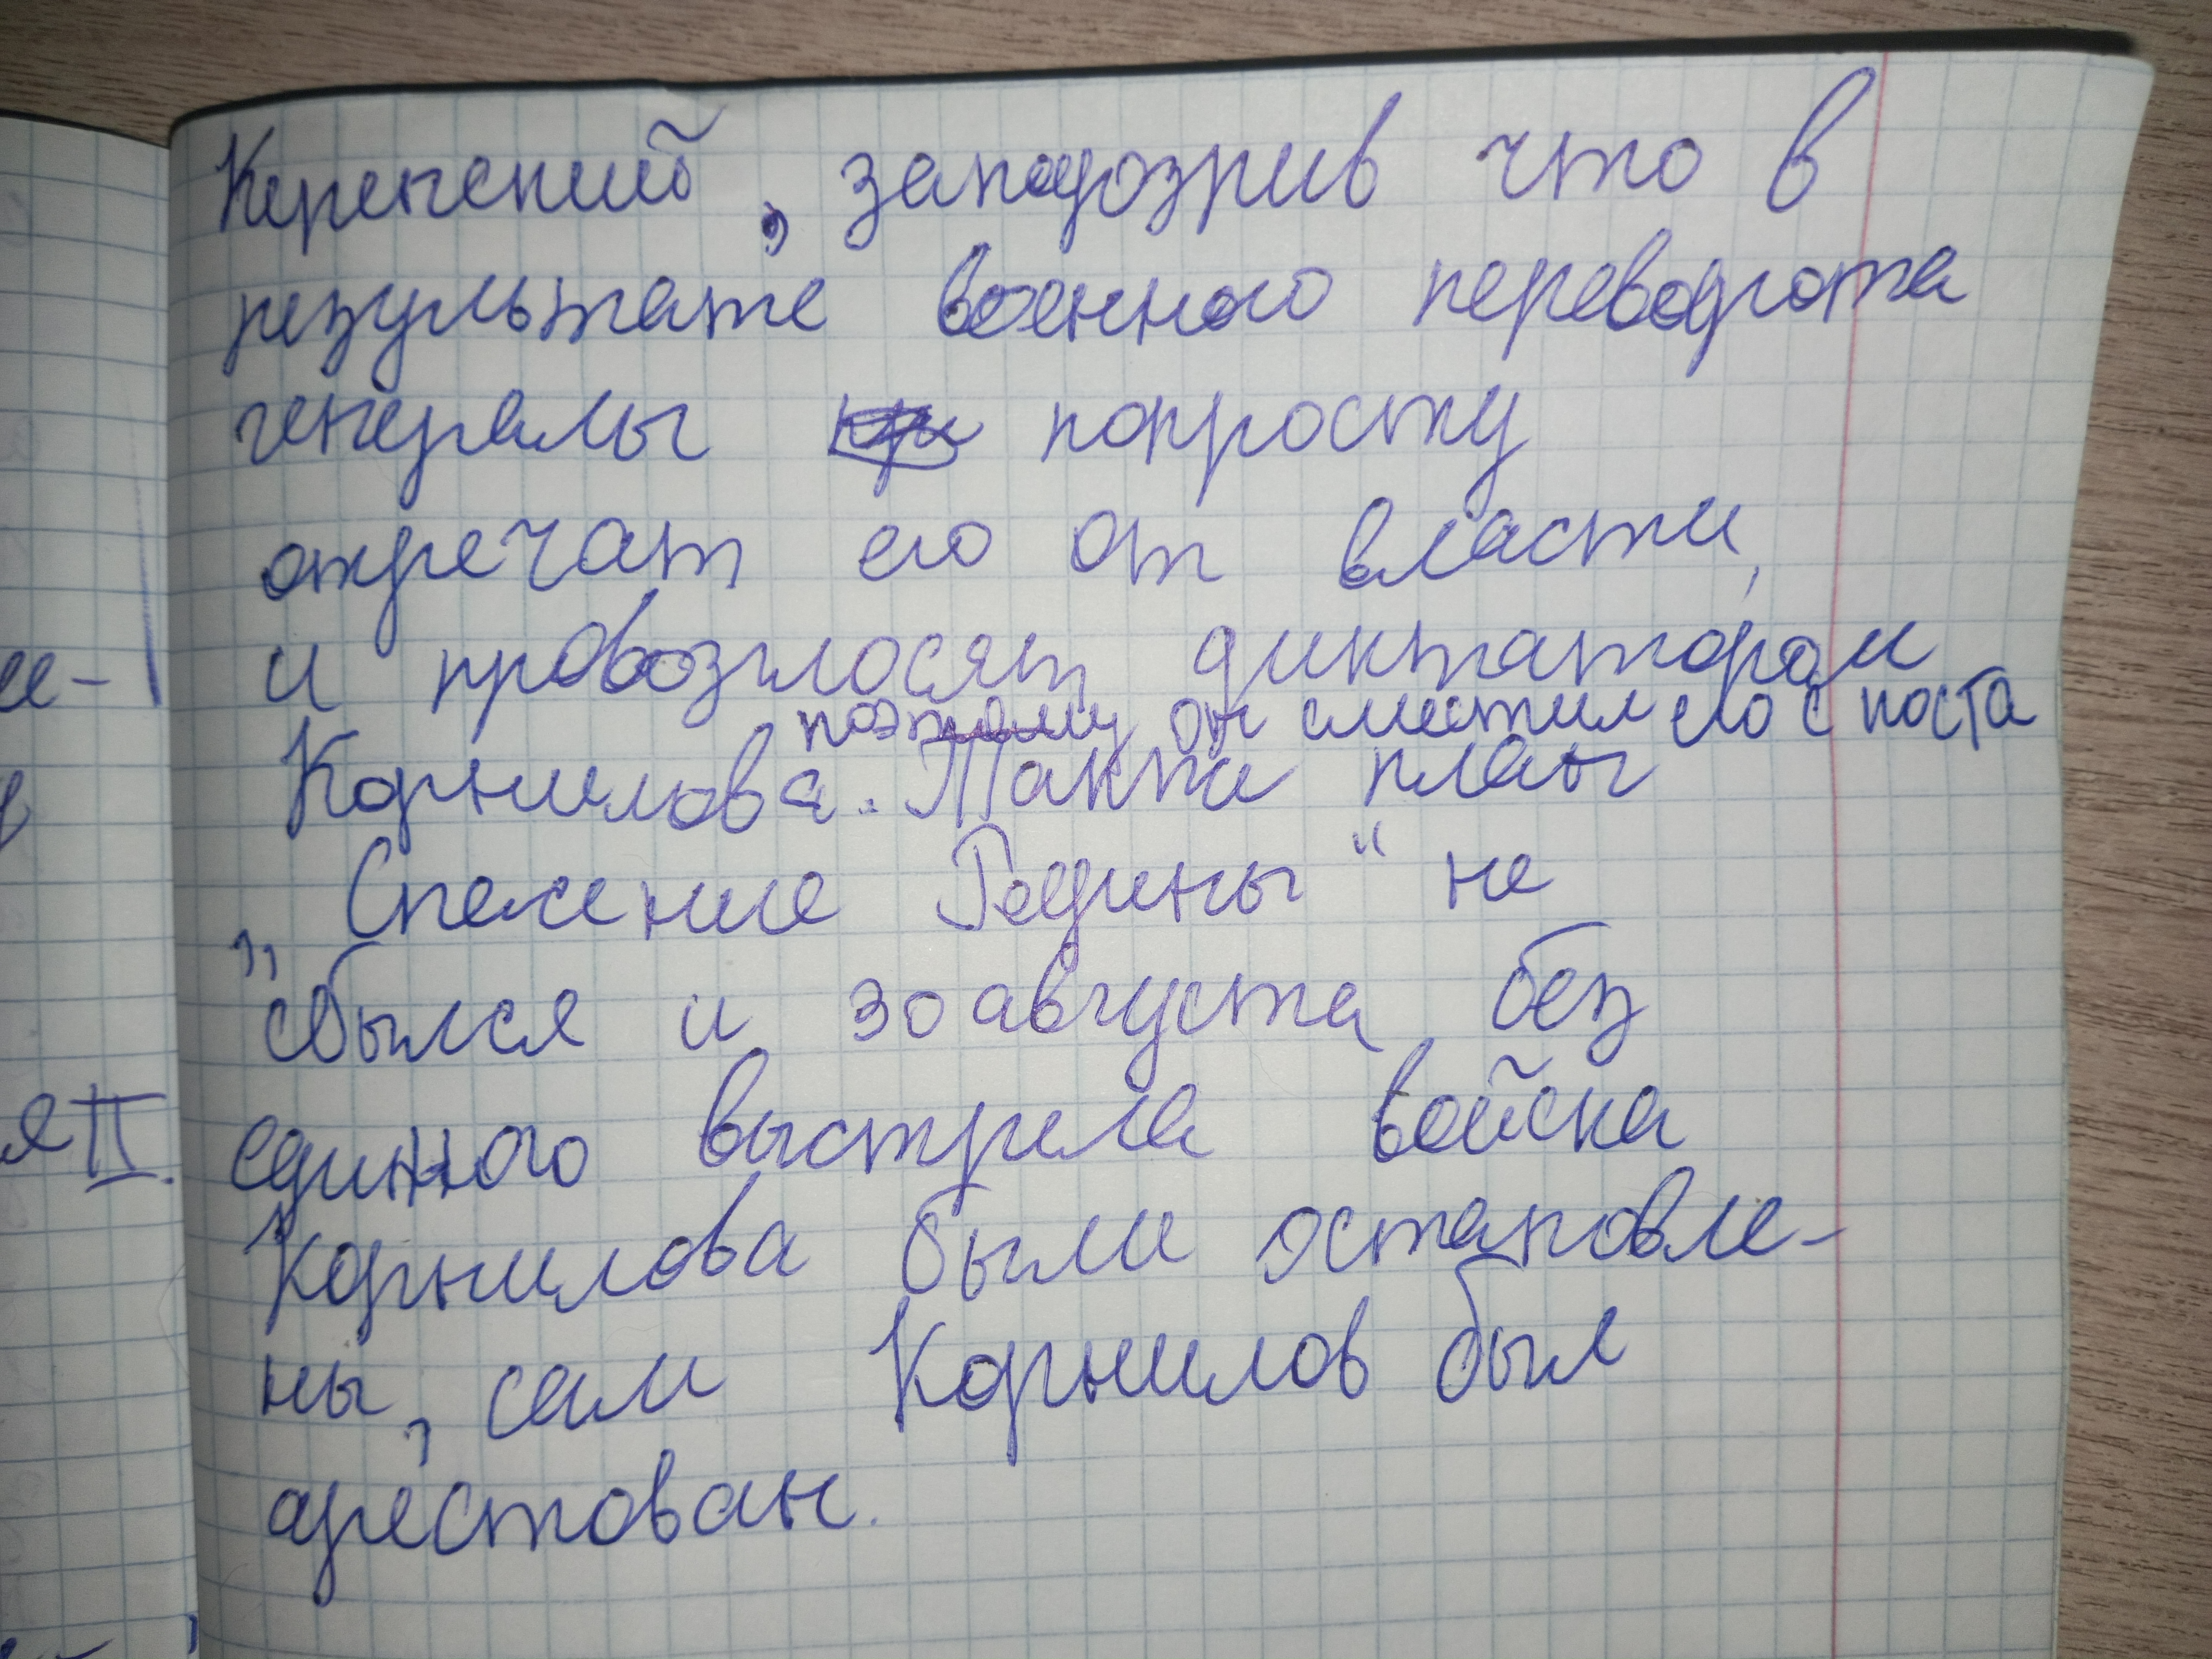 Керенский, заподозрив что в
результате военного переворота
генералы попросту
отречат его от власти,
и провозглосят диктатором
поэтому он сместил его с поста
Корнилова. Так план
„Спасение Родины“ не
сбылся и 30 августа без
единного выстрела войска
Корнилова были остановле-
ны, сам Корнилов был
арестован.